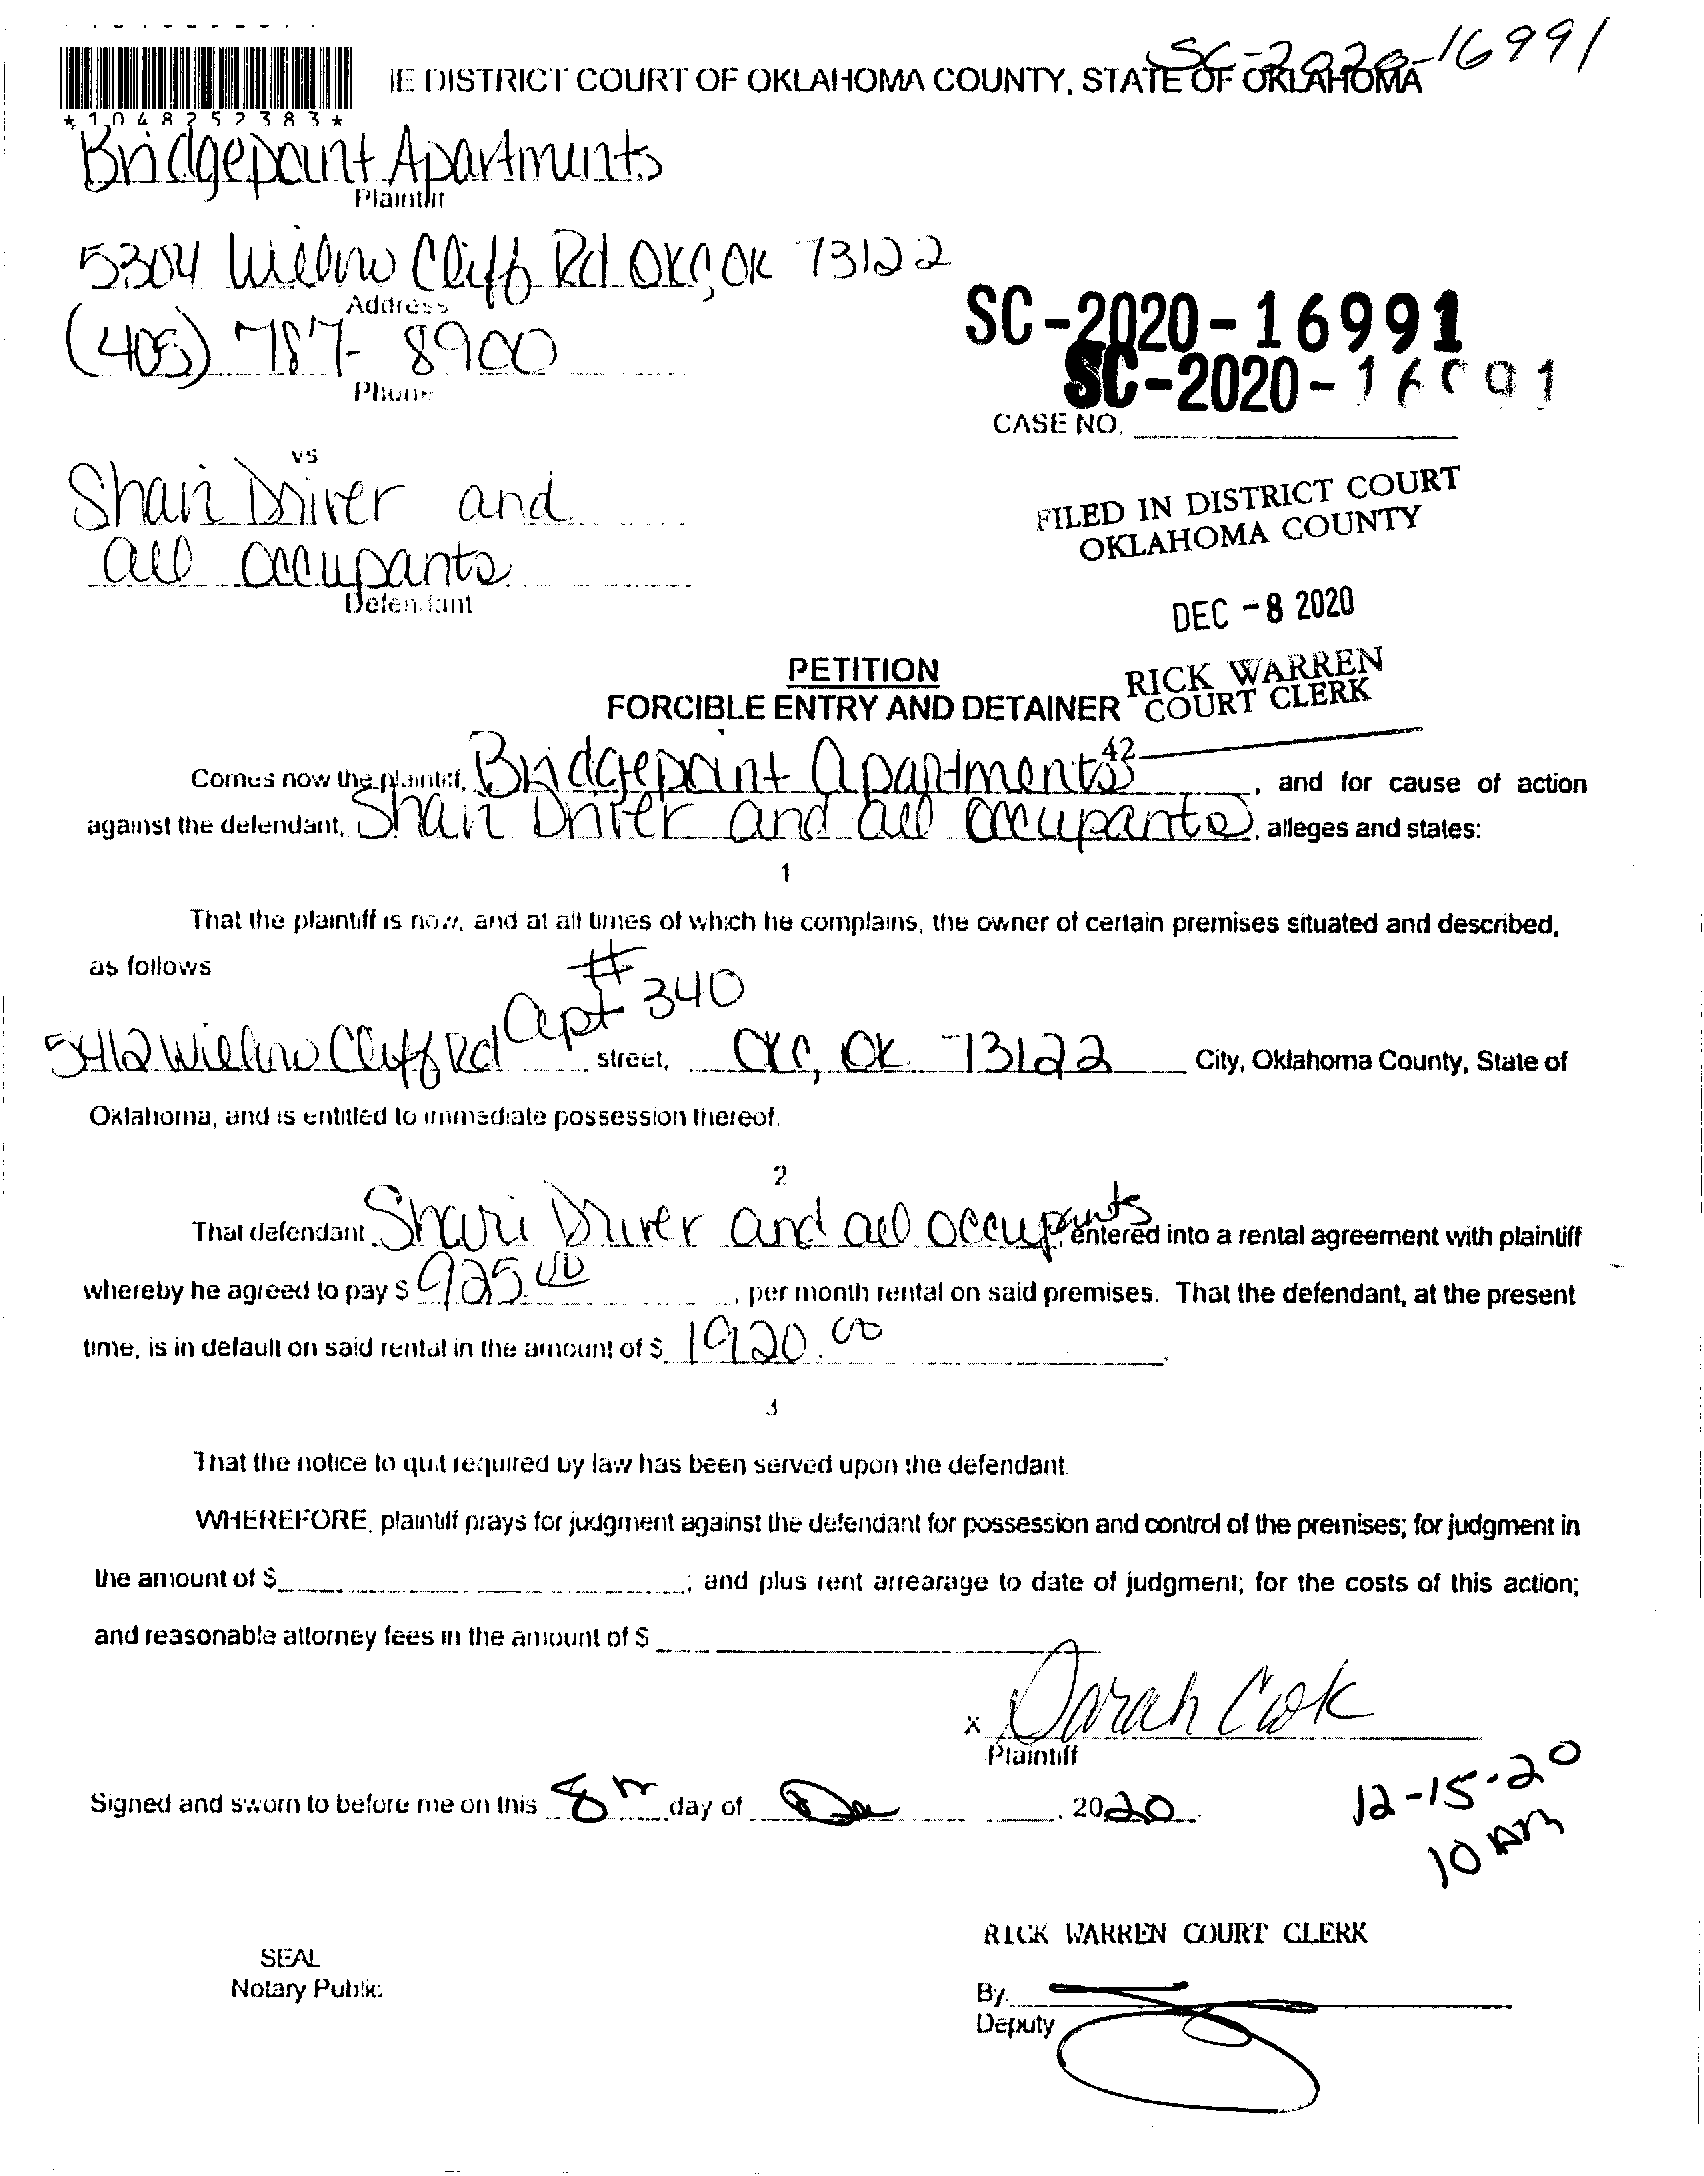 SC-2020-16991
IE DISTRICT COURT OF OKLAHOMA COUNTY, STATE OF OKLAHOMA
*1048252383*
Bridgepoint Apartments
Plaintiff
5304 Willow Cliff Rd OKC, OK 73122
Address
(405) 787-8900
Phone
SC-2020-16991
SC-2020-16991
CASE NO.
vs
Shari Driver and
all occupants
Defendant
FILED IN DISTRICT COURT
OKLAHOMA COUNTY
DEC -8 2020
RICK WARREN
COURT CLERK
42
PETITION
FORCIBLE ENTRY AND DETAINER
Comes now the plaintiff, Bridgepoint Apartments, and for cause of action
against the defendant, Shari Driver and all occupants, alleges and states:
1
That the plaintiff is now, and at all times of which he complains, the owner of certain premises situated and described,
as follows
5412 Willow Cliff Rd Apt #340 street, OKC, OK 73122 City, Oklahoma County, State of
Oklahoma, and is entitled to immediate possession thereof.
2
That defendant Shari Driver and all occupants, entered into a rental agreement with plaintiff
whereby he agreed to pay $ 925.00, per month rental on said premises. That the defendant, at the present
time, is in default on said rental in the amount of $ 1920.00.
3
That the notice to quit required by law has been served upon the defendant.
WHEREFORE, plaintiff prays for judgment against the defendant for possession and control of the premises; for judgment in
the amount of $; and plus rent arrearage to date of judgment; for the costs of this action;
and reasonable attorney fees in the amount of $
x Sarah Cook
Plaintiff
Signed and sworn to before me on this 8th day of Dec, 2020.
12-15-20
10 AM
RICK WARREN COURT CLERK
SEAL
Notary Public
By
Deputy